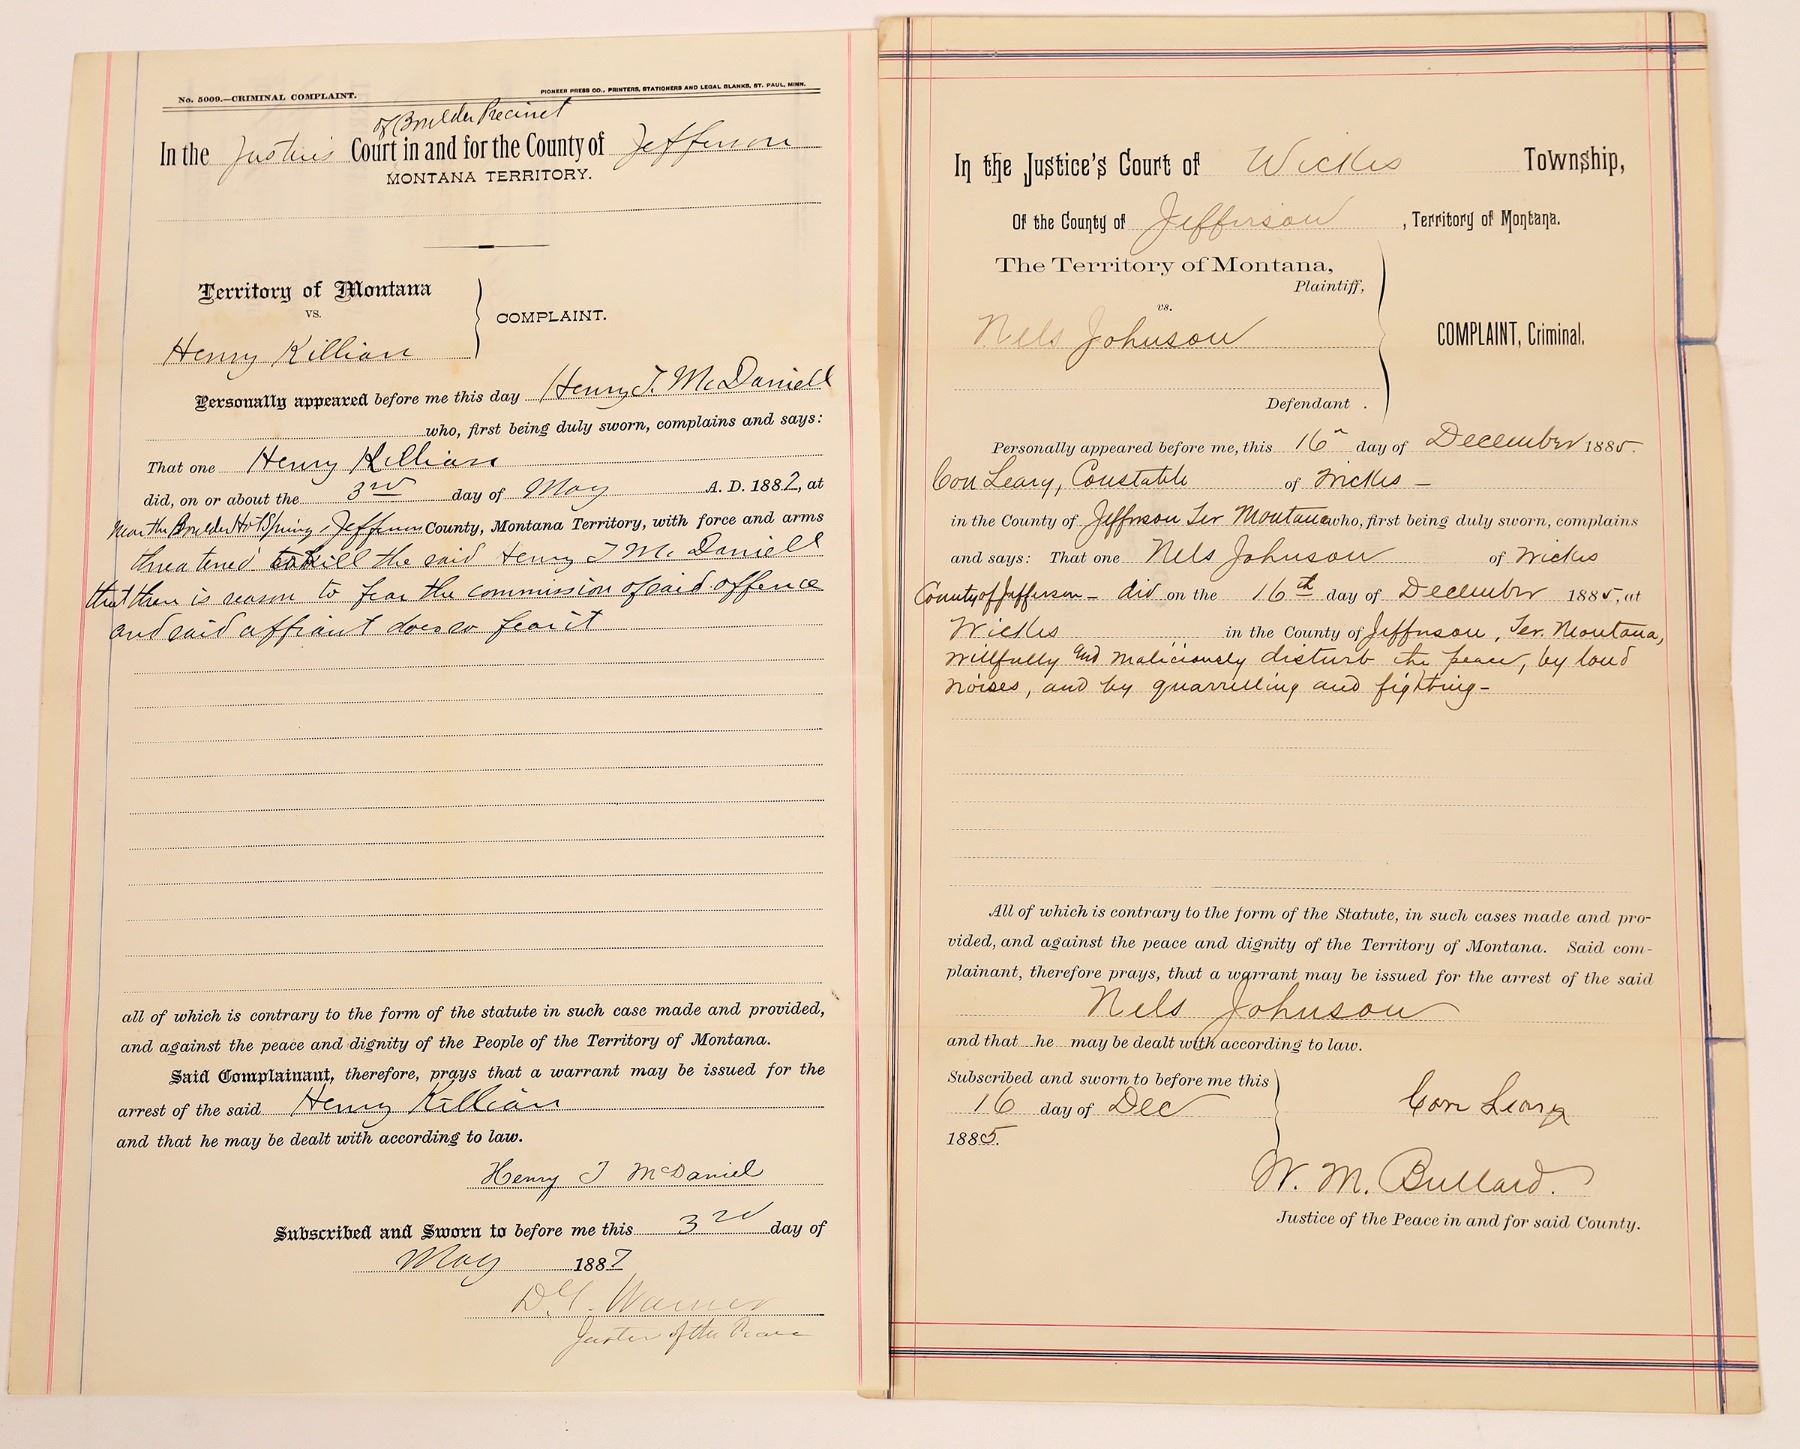 No. 5009.—CRIMINAL COMPLAINT.
PIONEER PRESS CO., PRINTERS, STATIONERS AND LEGAL BLANKS, ST. PAUL, MINN.
of Boulder Precinct
In the Justice's Court in and for the County of Jefferson
MONTANA TERRITORY.
Territory of Montana
VS.
COMPLAINT.
Henry Killian
Personally appeared before me this day Henry T. McDaniell
who, first being duly sworn, complains and says:
That one Henry Killian
did, on or about the 3rd day of May A. D. 1887, at
Near the Boulder Hot Springs, Jefferson County, Montana Territory, with force and arms
threatened to kill the said Henry T McDaniell
that there is reason to fear the commission of said offence
and said affiant does so fear it
all of which is contrary to the form of the statute in such case made and provided,
and against the peace and dignity of the People of the Territory of Montana.
Said Complainant, therefore, prays that a warrant may be issued for the
arrest of the said Henry Killian
and that he may be dealt with according to law.
Henry T McDaniel
Subscribed and Sworn to before me this 3rd day of
May 1887
Warner
Justice of the Peace
In the Justice's Court of Wickes Township,
Of the County of Jefferson, Territory of Montana.
The Territory of Montana,
Plaintiff,
vs.
Nels Johnson
COMPLAINT, Criminal.
Defendant.
Personally appeared before me, this 16" day of December 1885.
Con Leary, Constable of Wickes —
in the County of Jefferson Ter Montana who, first being duly sworn, complains
and says: That one Nels Johnson of Wickes
County of Jefferson — did on the 16th day of December 1885, at
Wickes in the County of Jefferson, Ter. Montana,
willfully and maliciously disturb the peace, by loud
noises, and by quarrelling and fighting —
All of which is contrary to the form of the Statute, in such cases made and pro-
vided, and against the peace and dignity of the Territory of Montana. Said com-
plainant, therefore prays, that a warrant may be issued for the arrest of the said
Nels Johnson
and that he may be dealt with according to law.
Subscribed and sworn to before me this
16 day of Dec
1885.
Con Leary
W. M. Bullard.
Justice of the Peace in and for said County.